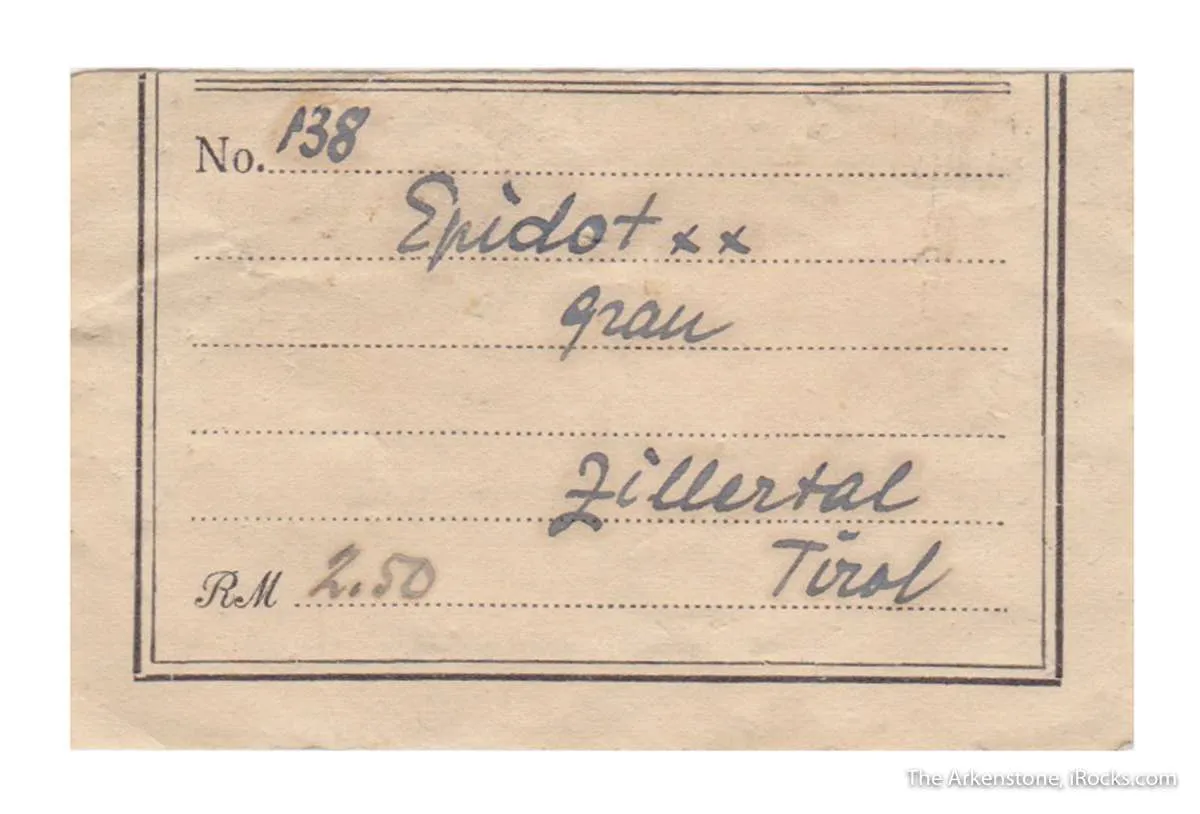 No. 138
Epidot xx
grau
Zillertal
Tirol
RM 2.50
The Arkenstone, iRocks.com